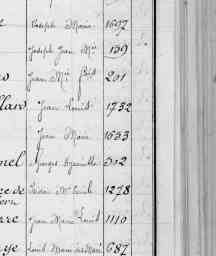 Joseph Marie 1697
Joseph Jean Mie 199
Jean Mie Bte 201
llard Jean Louis 1732
Jean Marie 1633
nel Georges 312
ce de Isidore Mie Emile 1278
rre Jean Marie Louis 1110
ye Louis Marie 687